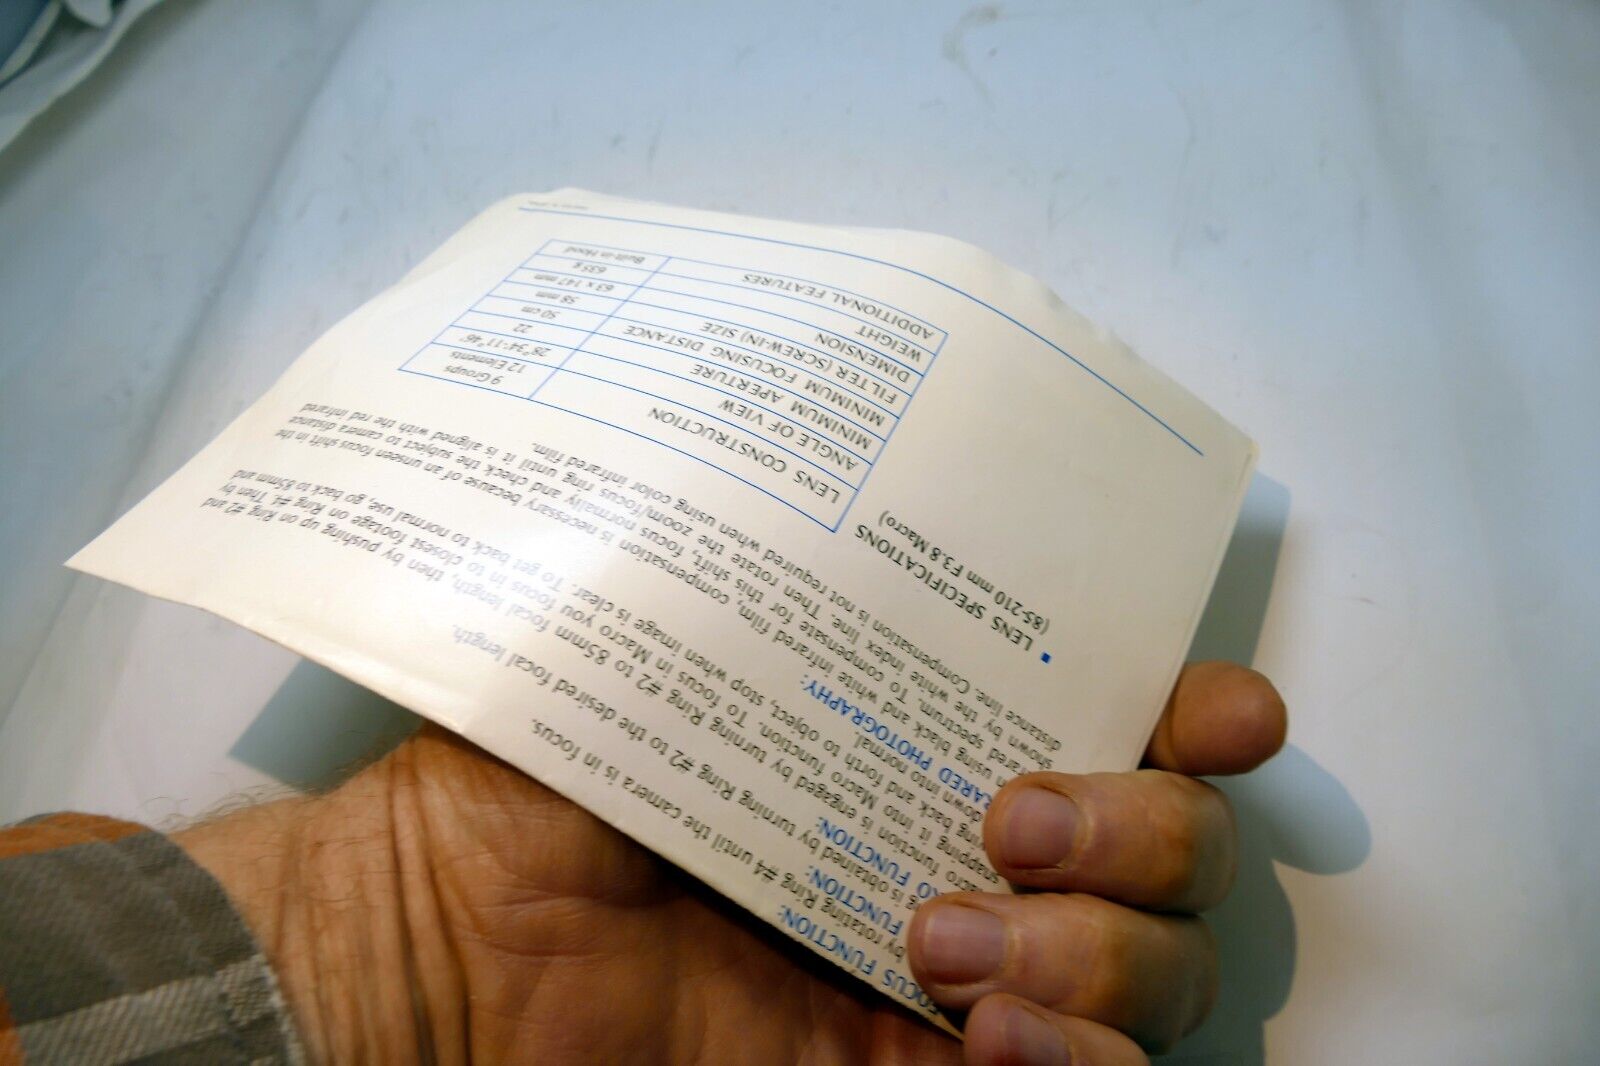 FOCUS FUNCTION:
by rotating Ring #4 until the camera is in focus.
FUNCTION:
is obtained by turning Ring #2 to the desired focal length.
RO FUNCTION:
acro function is engaged by turning Ring #2 to 85mm focal length, then by pushing up on Ring #2 and
snapping it into Macro function. To focus in Macro you focus in to closest footage on Ring #4. Then by
ring back and forth to object, stop when image is clear. To get back to normal use, go back to 85mm and
down into normal.
RARED PHOTOGRAPHY:
n using black and white infrared film, compensation is necessary because of an unseen focus shift in the
nfrared spectrum. To compensate for this shift, focus normally and check the subject to camera distance
shown by the white index line. Then rotate the zoom/focus ring until it is aligned with the red infrared
distance line. Compensation is not required when using color infrared film.
▪ LENS SPECIFICATIONS
(85-210 mm F3.8 Macro)
LENS CONSTRUCTION 9 Groups
12 Elements
ANGLE OF VIEW 28°34'-11°46'
MINIMUM APERTURE 22
MINIMUM FOCUSING DISTANCE 50 cm
FILTER (SCREW-IN) SIZE 58 mm
DIMENSION 63 x 147 mm
WEIGHT 635 g
ADDITIONAL FEATURES Built-in Hood